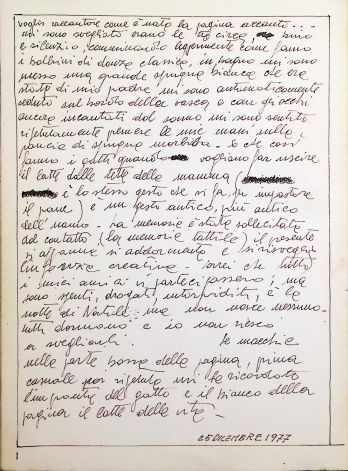 voglio raccontare come è nata la pagina accanto...
mi sono svegliato erano le 40 circa, buio
e silenzio, camminando leggermente come fanno
i ballerini di danza classica, in bagno mi sono
messo una grande spugna bianca che era
stata di mio padre mi sono automaticamente
seduto sul bordo della vasca e con gli occhi
ancora incantati dal sonno mi sono sentito
ripetutamente premere le mie mani sulla
pancia di spugna morbida - è che così
fanno i gatti quando vogliono far uscire
il latte dalle tette della mamma (
è lo stesso gesto che si fa per impastare
il pane) è un gesto antico, più antico
dell'uomo - La memoria è stata sollecitata
dal contatto (la memoria tattile) il presente
si affanna si addormenta e si risveglia
in forza creativa - vorrei che tutti
i miei amici vi partecipassero, ma
sono spenti, drogati, intorpiditi, è la
notte di Natale ma non nasce nessuno -
tutti dormono e io non riesco
a svegliarli. le macchie
nella parte bassa della pagina, prima
casuale poi ripetuta mi ha ricordato
l'impronta del gatto e il bianco della
pagina il latte della vita -
25 DICEMBRE 1977